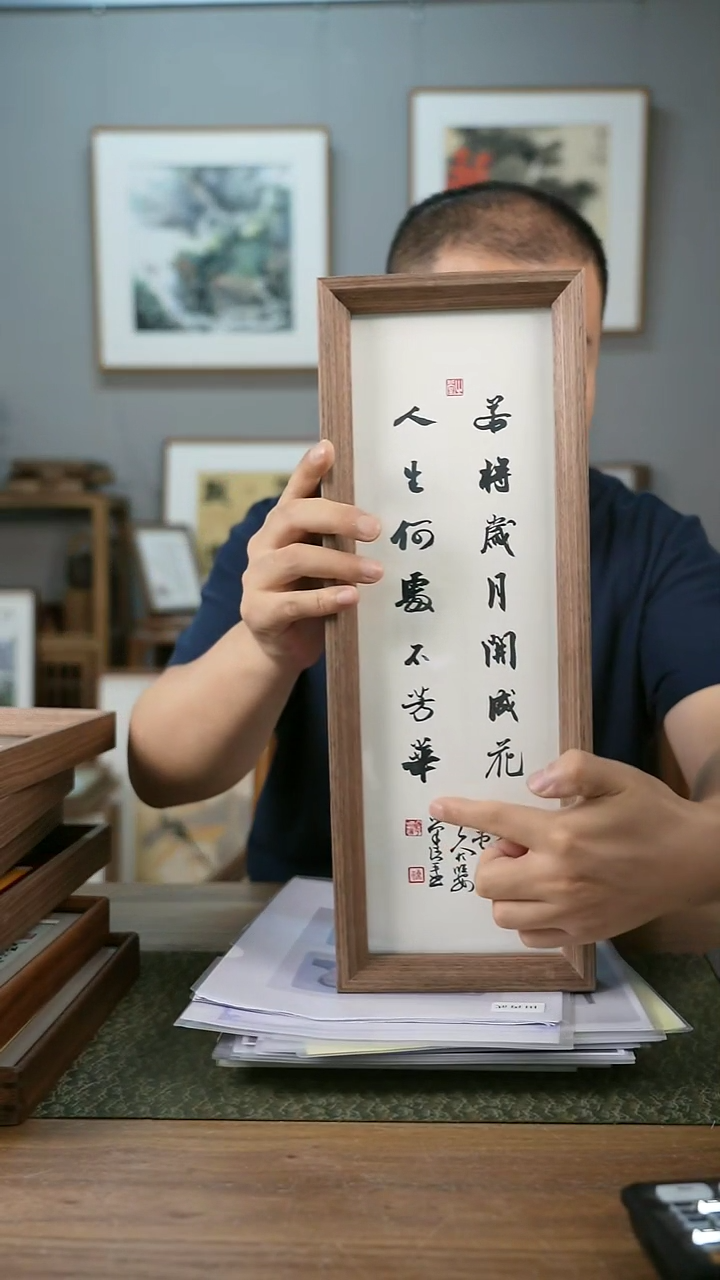 若将歲月開成花
人生何處不芳華